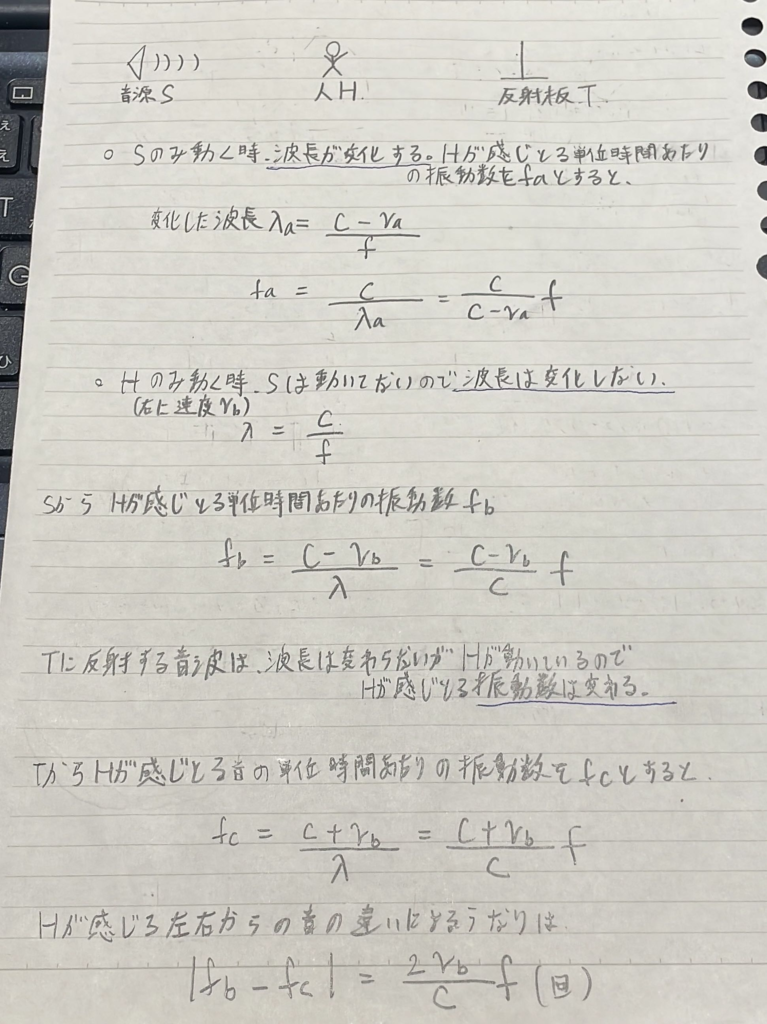 音源S 人H. 反射板T.
○ Sのみ動く時、波長が変化する。Hが感じとる単位時間あたり
の振動数をfaとすると、
変化した波長λa = (C - Va) / f
fa = C / λa = C / (C - Va) f
○ Hのみ動く時、Sは動いてないので波長は変化しない.
(右に速度Vb)
λ = C / f
SからHが感じとる単位時間あたりの振動数fb
fb = (C - Vb) / λ = (C - Vb) / C f
Tに反射する音波は、波長は変わらないがHが動いているので
Hが感じとる振動数は変わる。
TからHが感じとる音の単位時間あたりの振動数をfcとすると.
fc = (C + Vb) / λ = (C + Vb) / C f
Hが感じる左右からの音の違いによるうなりは
|fb - fc| = 2Vb / C f (回)